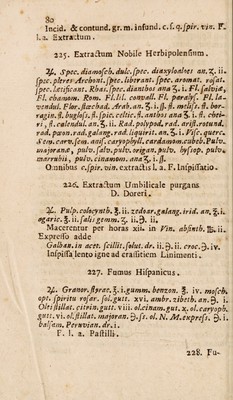 80
Incid. & contund. gr. m. infund. c. s. q. spir. vin. F.
l. a. Extractum.
225. Extractum Nobile Herbipolensium.
℞. Spec. diamosch. dulc. spec. diaxyloaloes an. ʒ. ii.
spec. pleres Archont. spec. liberant. spec. aromat. rosat.
spec. lætificant. Rhas. spec. dianthos ana ʒ. i. Fl. salviæ,
Fl. chamom. Rom. Fl. lil. convall. Fl. paralys. Fl. la-
vendul. Flor. stœchad. Arab. an. ʒ. i. ß. fl. meliss. fl. bor-
ragin. fl. bugloss. fl. spic. celtic. fl. anthos ana ʒ. i. fl. chei-
ri, fl. calendul. an. ʒ. ii. Rad. polypod. rad. arist. rotund.
rad. pæon. rad. galang. rad. liquirit. an. ʒ. i. Visc. querc.
Sem. carv. sem. anis. caryophyll. cardamom. cubeb. Pulv.
majorana, pulv. salv. pulv. origan. pulv. hyssop. pulv.
marrubii, pulv. cinamom. ana ʒ. i. ß.
Omnibus c. spir. vin. extractis l. a. F. Inspissatio.
226. Extractum Umbilicale purgans
D. Doreri.
℞. Pulp. colocynth. ʒ. ii. zedoar. galang. irid. an. ʒ. i.
agaric. ʒ. ii. salis gemm. ʒ. ii. ℈. ii.
Macerentur per horas xii. in Vin. absinth. ℔. ii.
Expresso adde
Galban. in acet. scillit. solut. dr. ii. ℈. ii. croc. ℈. iv.
Inspissa lento igne ad crassitiem Linimenti.
227. Fumus Hispanicus.
℞. Granor. styrac. ℥. i. gumm. benzon. ℥. iv. mosch.
opt. spiritu rosar. sol. gutt. xvi. ambr. zibeth. an. ℈. i.
Ol. stillat. citri gutt. viii. ol. cinam. gutt. x. ol. caryoph.
gutt. vi. ol. stillat. majoran. ℈. ß. ol. N. M. express. ℈. i.
balsam. Peruvian. dr. i.
F. l. a. Pastilli.
228. Fu-